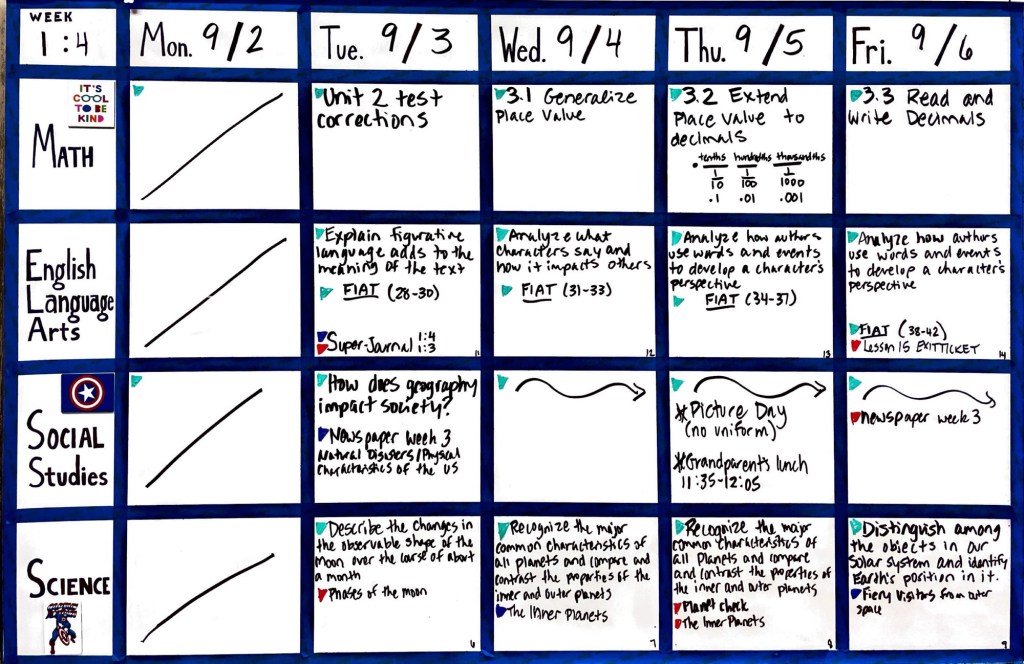 WEEK
1:4
Mon. 9/2
Tue. 9/3
Wed. 9/4
Thu. 9/5
Fri. 9/6
IT'S
COOL
TO BE
KIND
MATH
Unit 2 test
corrections
3.1 Generalize
Place Value
3.2 Extend
Place Value to
decimals
. tenths hundredths thousandths
1/10 1/100 1/1000
.1 .01 .001
3.3 Read and
Write Decimals
English
Language
Arts
Explain figurative
language adds to the
meaning of the text
FIAT (28-30)
Super Journal 1:4
1:3
11
Analyze what
characters say and
how it impacts others
FIAT (31-33)
12
Analyze how authors
use words and events
to develop a character's
perspective
FIAT (34-37)
13
Analyze how authors
use words and events
to develop a character's
perspective
FIAT (38-42)
Lesson 15 EXIT TICKET
14
SOCIAL
Studies
How does geography
impact society?
Newspaper week 3
Natural Disasters/Physical
Characteristics of the US
*Picture Day
(no uniform)
*Grandparents lunch
11:35-12:05
newspaper week 3
SCIENCE
Describe the changes in
the observable shape of the
moon over the course of about
a month
Phases of the moon
6
Recognize the major
common characteristics of
all planets and compare and
contrast the properties of the
inner and outer planets
The Inner Planets
7
Recognize the major
common characteristics of
all planets and compare
and contrast the properties of
the inner and outer planets
Planet check
The Inner Planets
8
Distinguish among
the objects in our
Solar system and identify
Earth's position in it.
Fiery Visitors from outer
space
9